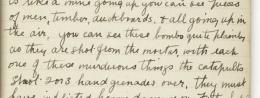 is like a mine going up you can see pieces
of men, timber, duckboards, & all going up in
the air, you can see these bombs quite plainly,
as they are shot from the mortar, with each
one of these murderous things the catapults
shoot 2 or 3 handgrenades over, They must
have inflicted